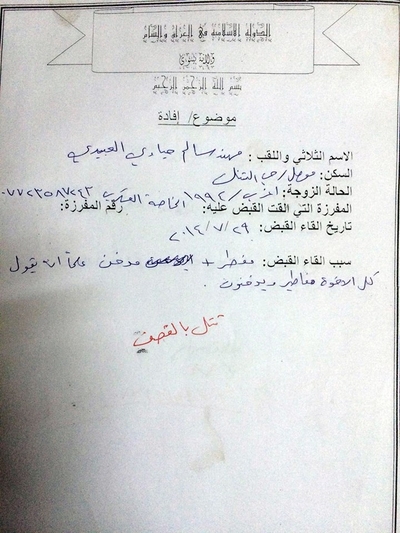 الدولة الاسلامية في العراق والشام
ولاية نينوى
بسم الله الرحمن الرحيم
موضوع/ إفادة
الاسم الثلاثي واللقب : مهند سالم حياوي العبيدي
السكن: موصل/حي التنك
الحالة الزوجة: اعزب/١٩٩٢
المفرزة التي القت القبض عليه: رقم المفرزة:
تاريخ القاء القبض: ٢٠١٤/٧/٢٩
سبب القاء القبض: مفطر + مدخن علماً انه يقول
كل الاخوة مفاطير ويدخنون .
قتل بالقصف